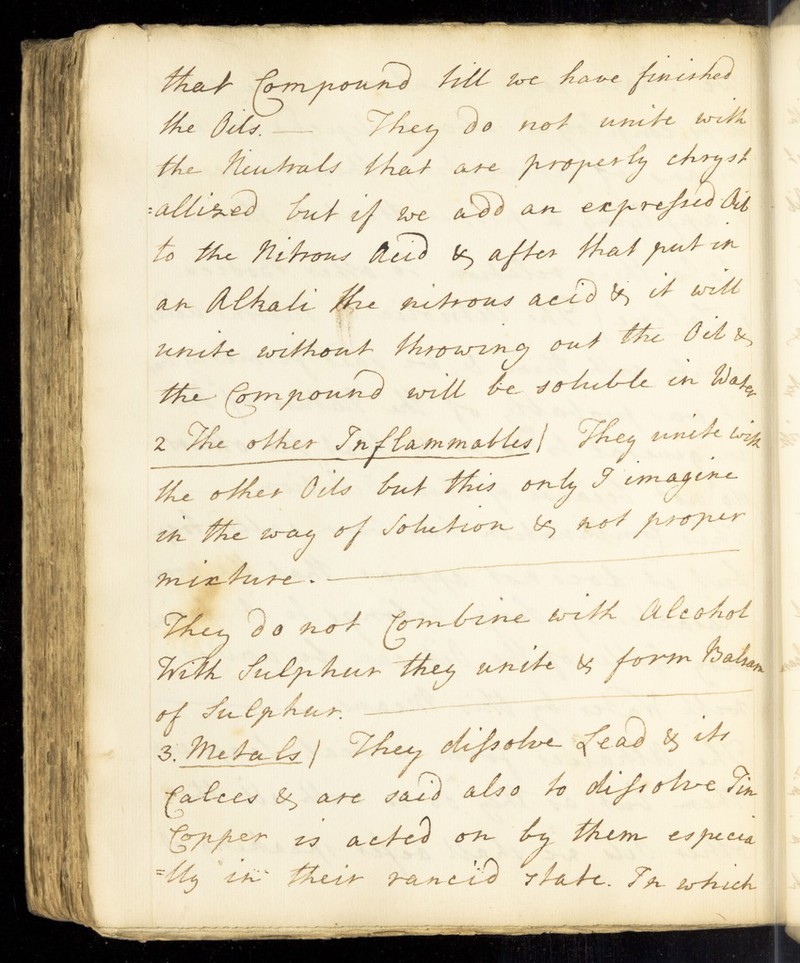 that Compound till we have finished
the Oils. — They do not unite with
the Neutrals that are properly chryst
=allized but if we add an expressed Oil
to the Nitrous Acid & after that put in
an Alkali the nitrous acid & it will
unite without throwing out the Oil &
the Compound will be soluble in Water
2 The other Inflammables | They unite with
the other Oils but this only I imagine
in the way of Solution & not proper
mixture. —
They do not Combine with Alcohol
With Sulphur they unite & form Balsam
of Sulphur. —
3. Metals | They dissolve Lead & its
Calces & are said also to dissolve Tin
Copper is acted on by them especia
=lly in their rancid state. In which